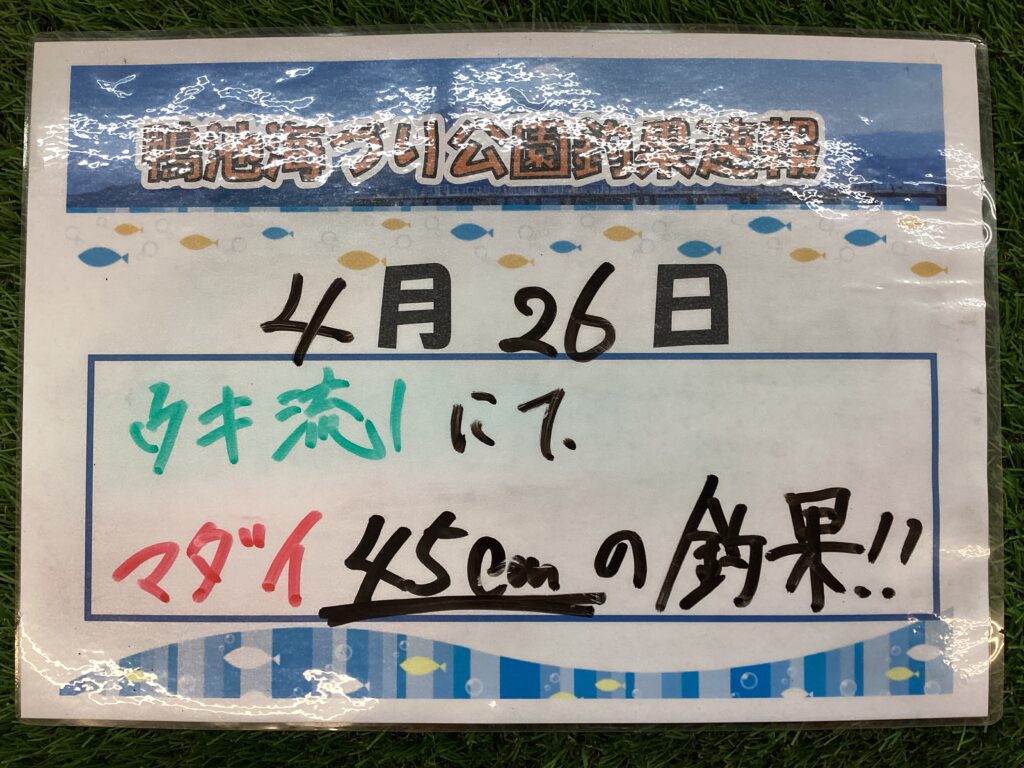 鴨池海づり公園釣果速報
4月26日
ウキ流しにて、
マダイ45cmの釣果!!